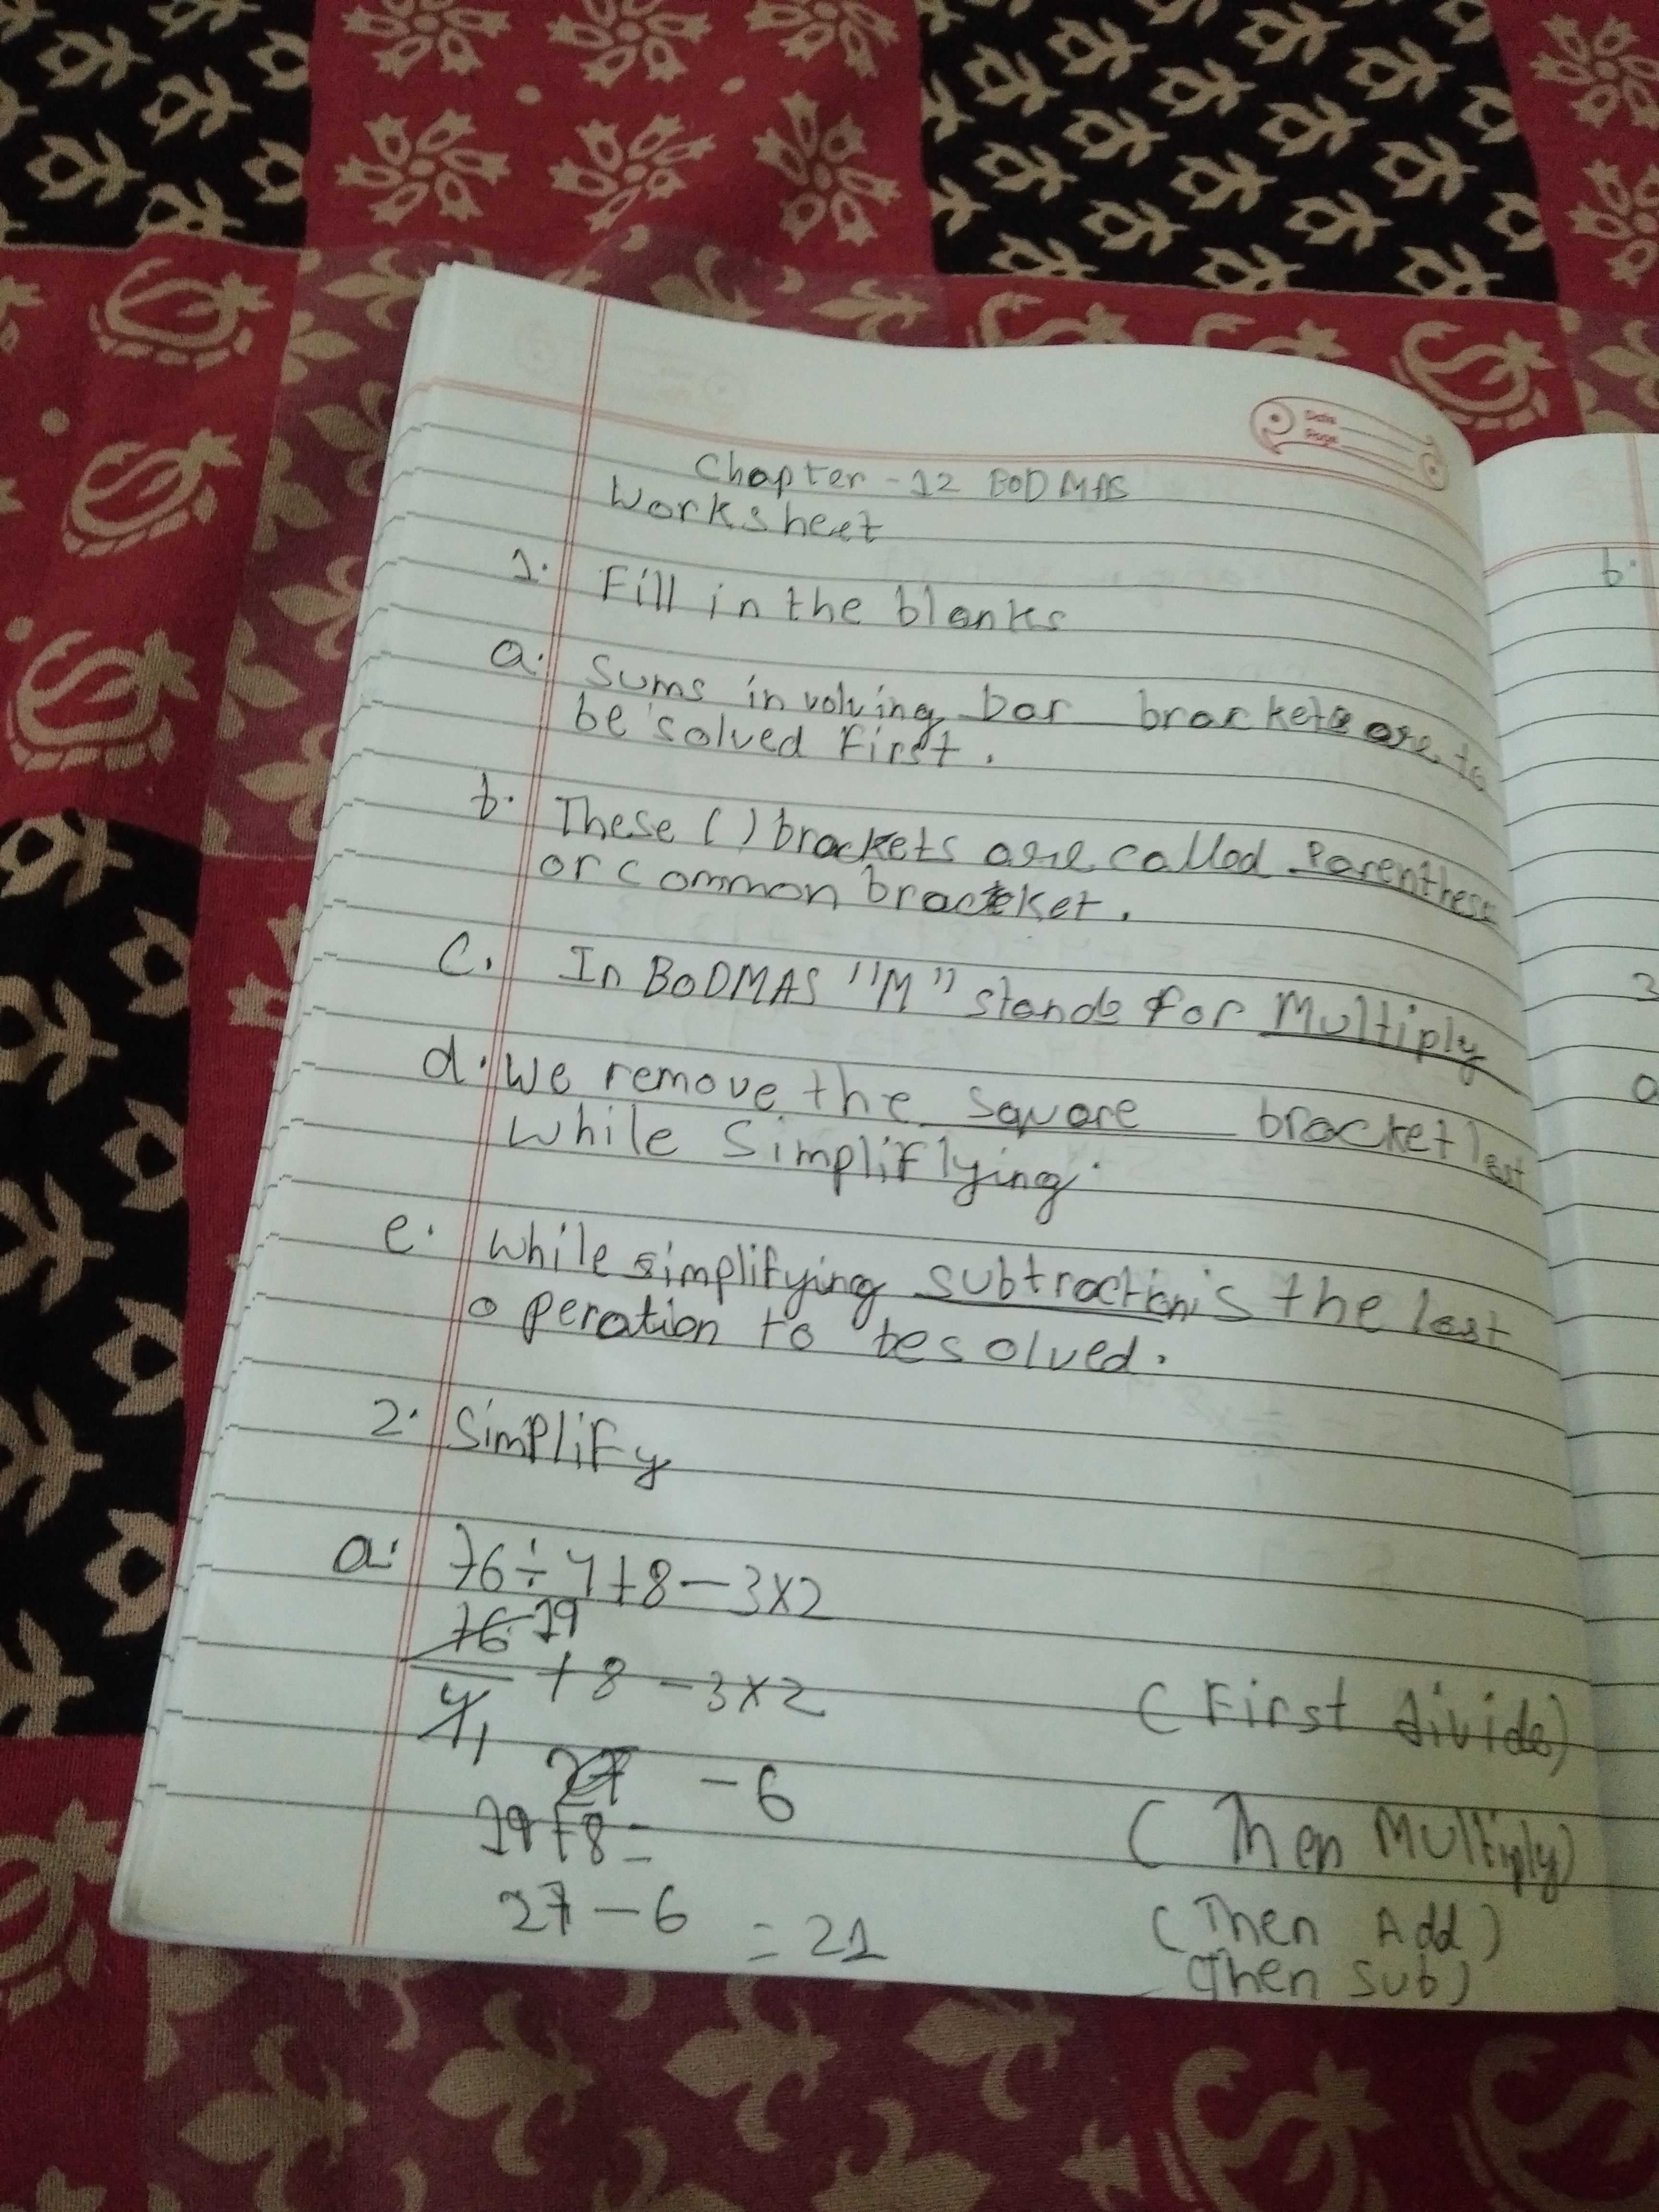 Date
Page
Chapter - 12 BODMAS
Worksheet
1. Fill in the blanks
a. Sums involving bar brackets are to
be solved first.
b. These ( ) brackets are called Parenthese
or common bracket.
c. In BODMAS "M" stands for Multiply
d. We remove the square bracket last
while Simpliflying.
e. while simplifying subtraction is the last
operation to be solved.
2. Simplify
a. 76 ÷ 4 + 8 - 3 x 2
76 19
+ 8 - 3 x 2 (First divide)
4 1
27 - 6
19 + 8 = (Then Multiply)
27 - 6 = 21 (Then Add)
(Then Sub)
b.
3
a